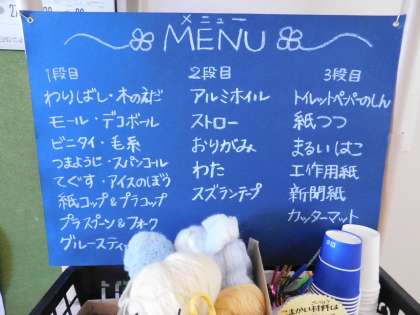 メニュー
MENU
1段目
わりばし・木のえだ
モール・デコボール
ビニタイ・毛糸
つまようじ・スパンコール
てぐす・アイスのぼう
紙コップ&プラコップ
プラスプーン&フォーク
グルースティ
2段目
アルミホイル
ストロー
おりがみ
わた
スズランテープ
3段目
トイレットペーパーのしん
紙つつ
まるいはこ
工作用紙
新聞紙
カッターマット
こまかい材料は